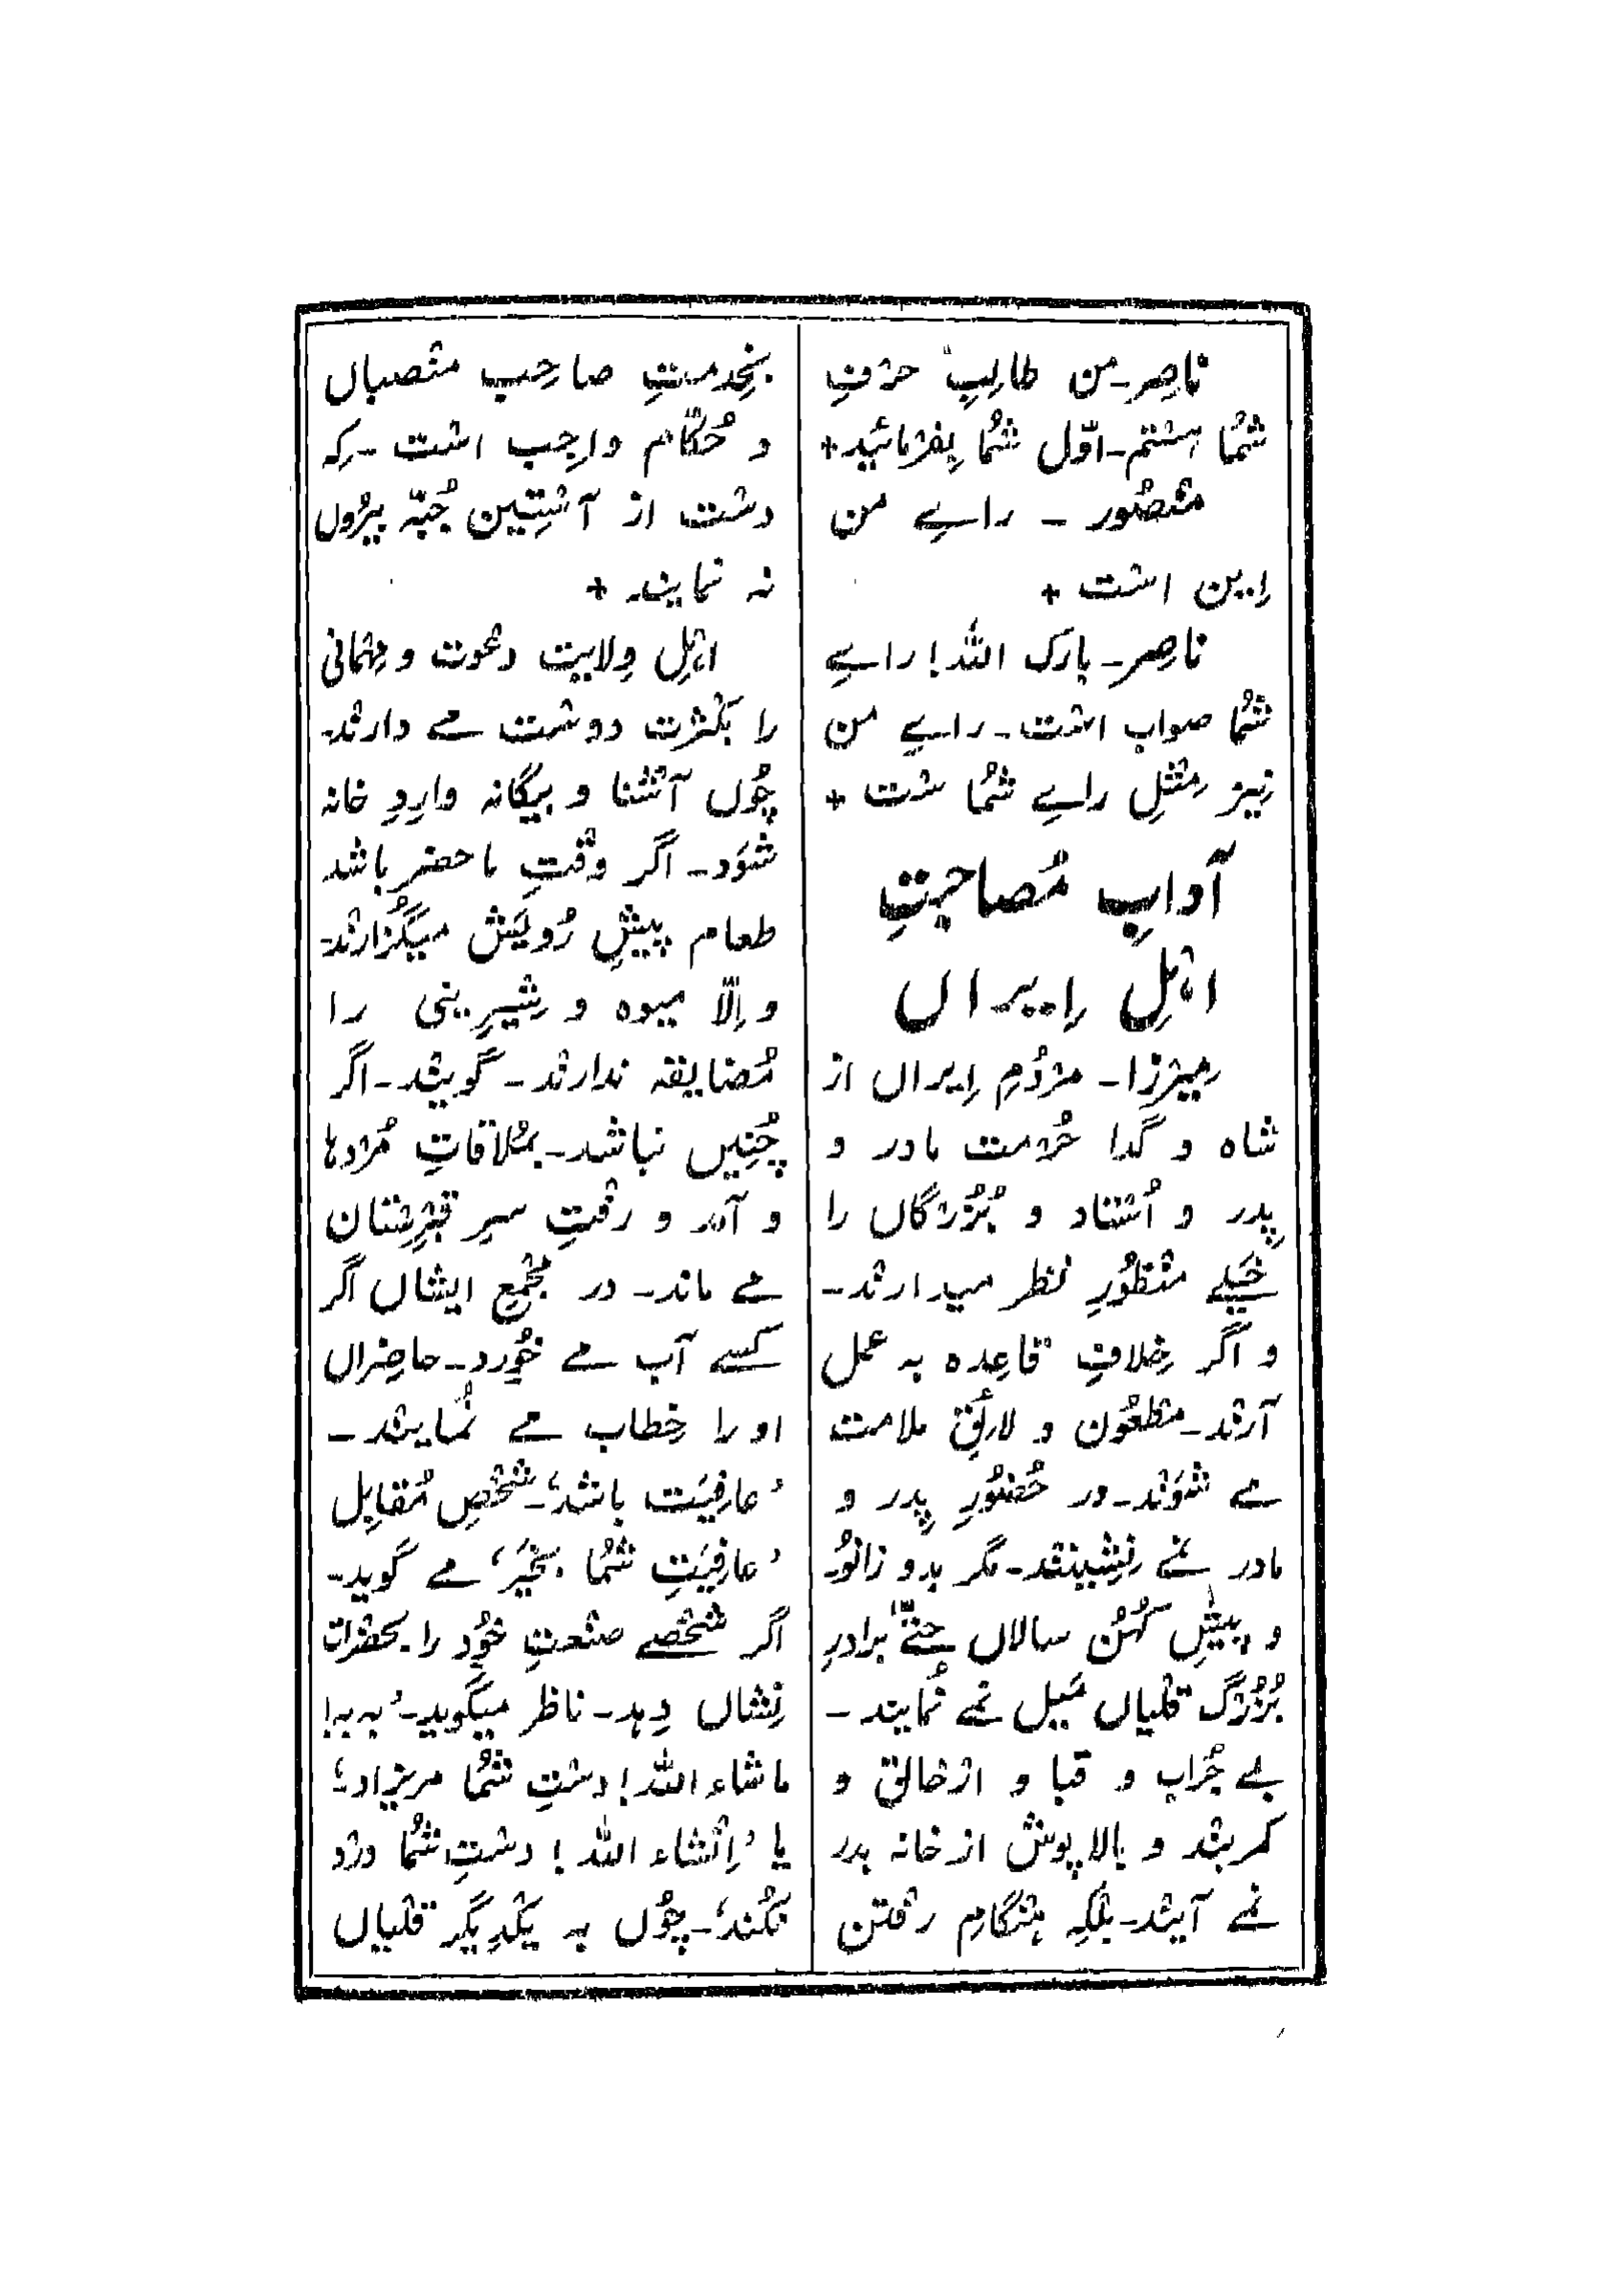 ناصِر۔من طالِبِ حرْفِ
شُما ہستم۔اوّل شُما بِفرْمائید+
منْصُور ۔ راے من
اِیں اسْت +
ناصِر۔ بارک اللّٰہ! راے
شُما صواب اسْت۔ راے من
نِیز مِثْلِ راے شُما سْت +
آدابِ مُصاحبتِ
اہْلِ اِیراں
مِیرْزا۔ مرْدُمِ اِیراں از
شاہ و گدا حُرْمت مادر و
پِدر و اُسْتاد و بُزُرْگاں را
خَیلے منْظُورِ نظر میدارنْد۔
و اگر خِلافِ قاعِدہ بہ عمل
آرنْد۔مطْعُون و لائِقِ ملامت
مے شَوَنْد۔در حُضُورِ پِدر و
مادر نمے نِشِینند۔مگر بدو زانُو
و پیشِ کُہُن سالاں حتّےٰ برادرِ
بُزُرْگ قلیاں مَیل نمے نُمایند۔
بے جُراب و قبا و ارْخالق و
کمربنْد و بالاپوش از خانہ بدر
نمے آینْد۔بلْکِہ ہنْگامِ رفْتن
بخِدمتِ صاحِب منْصباں
و حُکّام واجِب اسْت۔کِہ
دسْت از آسْتِین جُبّہ بیرُوں
نہ نمایند +
اہْلِ وِلایت دعْوت و مِہْمانی
را بکثْرت دوسْت مے دارنْد۔
چُوں آشْنا و بیگانہ وارِدِ خانہ
شَوَد۔ اگر وقْتِ ماحضر باشد
طعام پیشِ رُویَش میگُزارنْد۔
و اِلّا میوہ و شِیرِینی را
مُضایقہ ندارنْد۔ گوینْد۔اگر
چُنِیں نباشد۔بمُلاقاتِ مُرْدہا
و آمد و رفْتِ سرِ قبْرِسْتان
مے ماند۔ در مجْمعِ ایشاں اگر
کسے آب مے خُورد۔حاضِراں
او را خِطاب مے نُماینْد۔
’عافِیَت باشد‘۔شخْصِ مُقابِل
’عافِیَتِ شُما بخَیْر‘ مے گوید۔
اگر شخْصے صنْعتِ خُود را بحضْرات
نِشاں دِہد۔ناظر میگوید۔’بہ بہ!
ماشاء اللّٰہ! دسْتِ شُما مریزاد‘؛
یا ’اِنْشاء اللّٰہ! دسْتِ شُما درْد
نکُند‘۔چُوں بہ یکْدِیگر قلْیاں